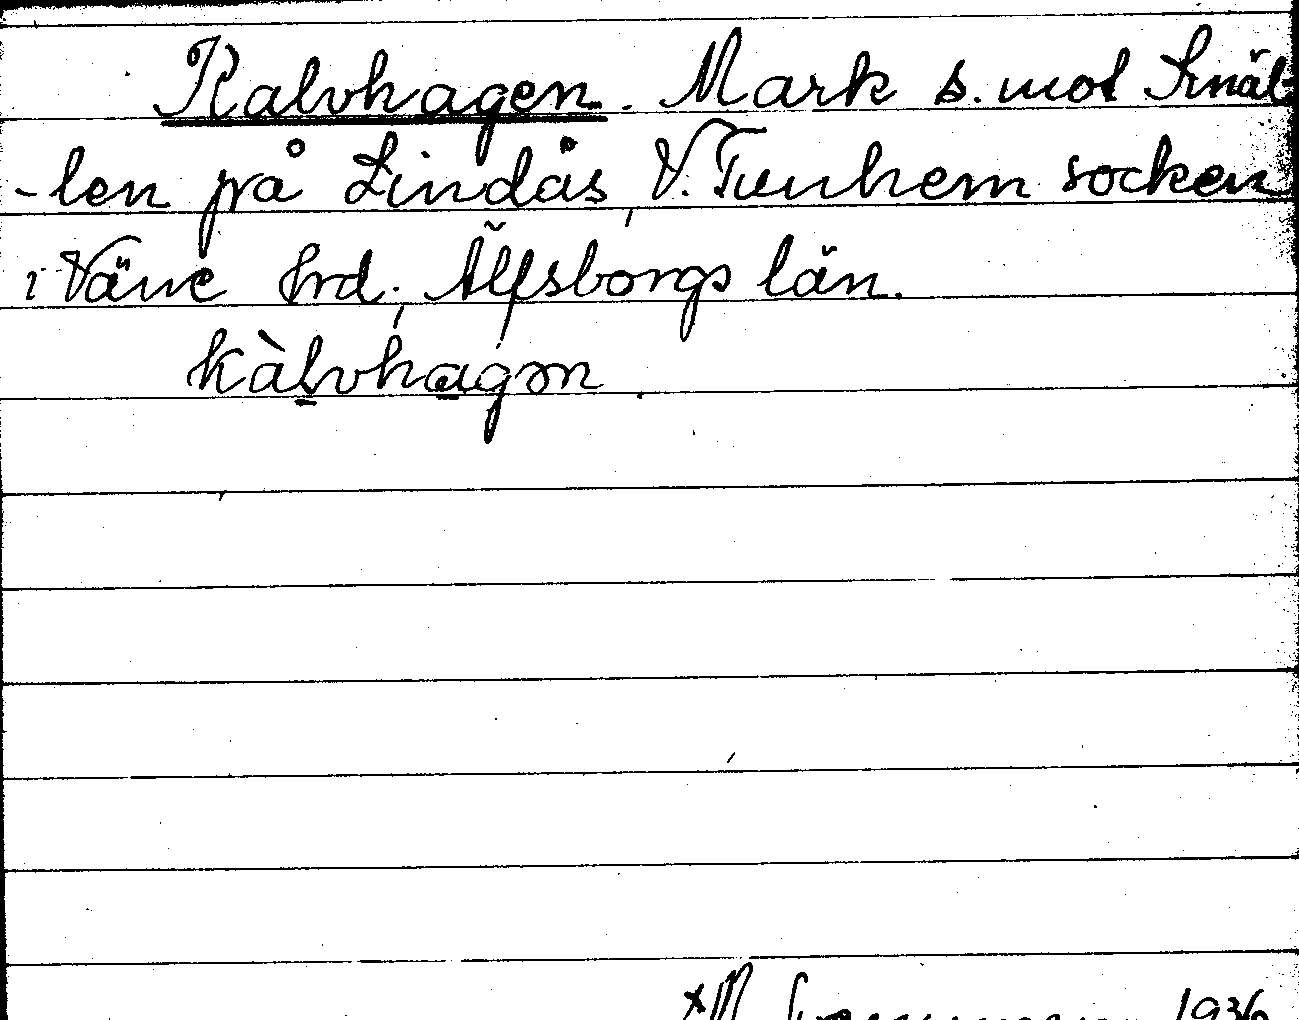 Kalvhagen. Mark s. mot Smäl-
-len på Lindås V. Tunhem socken
i Väne hrd. Älfsborgs län.
kàlvhagən
1936